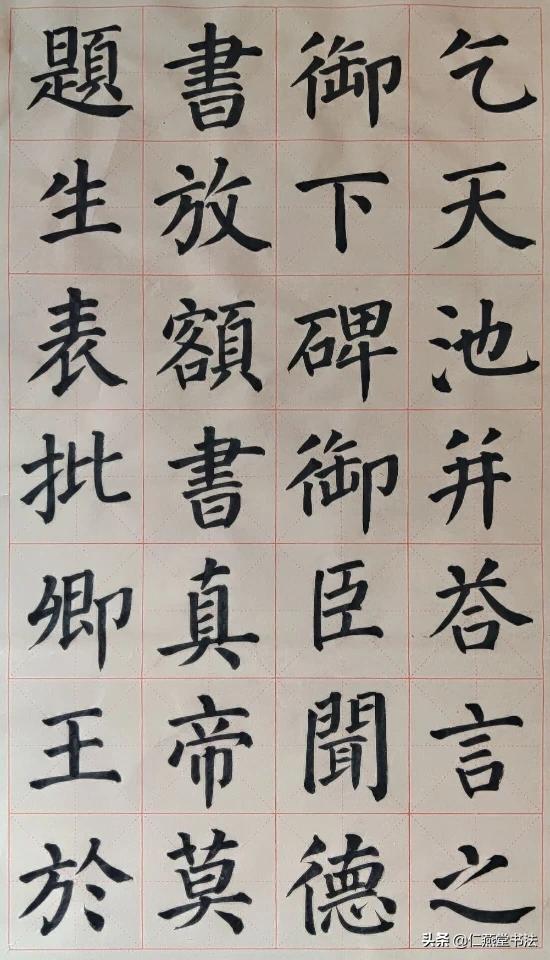 乞天池并荅言之
御下碑御臣聞德
書放額書真帝莫
題生表批卿王於
头条 @仁燕堂书法